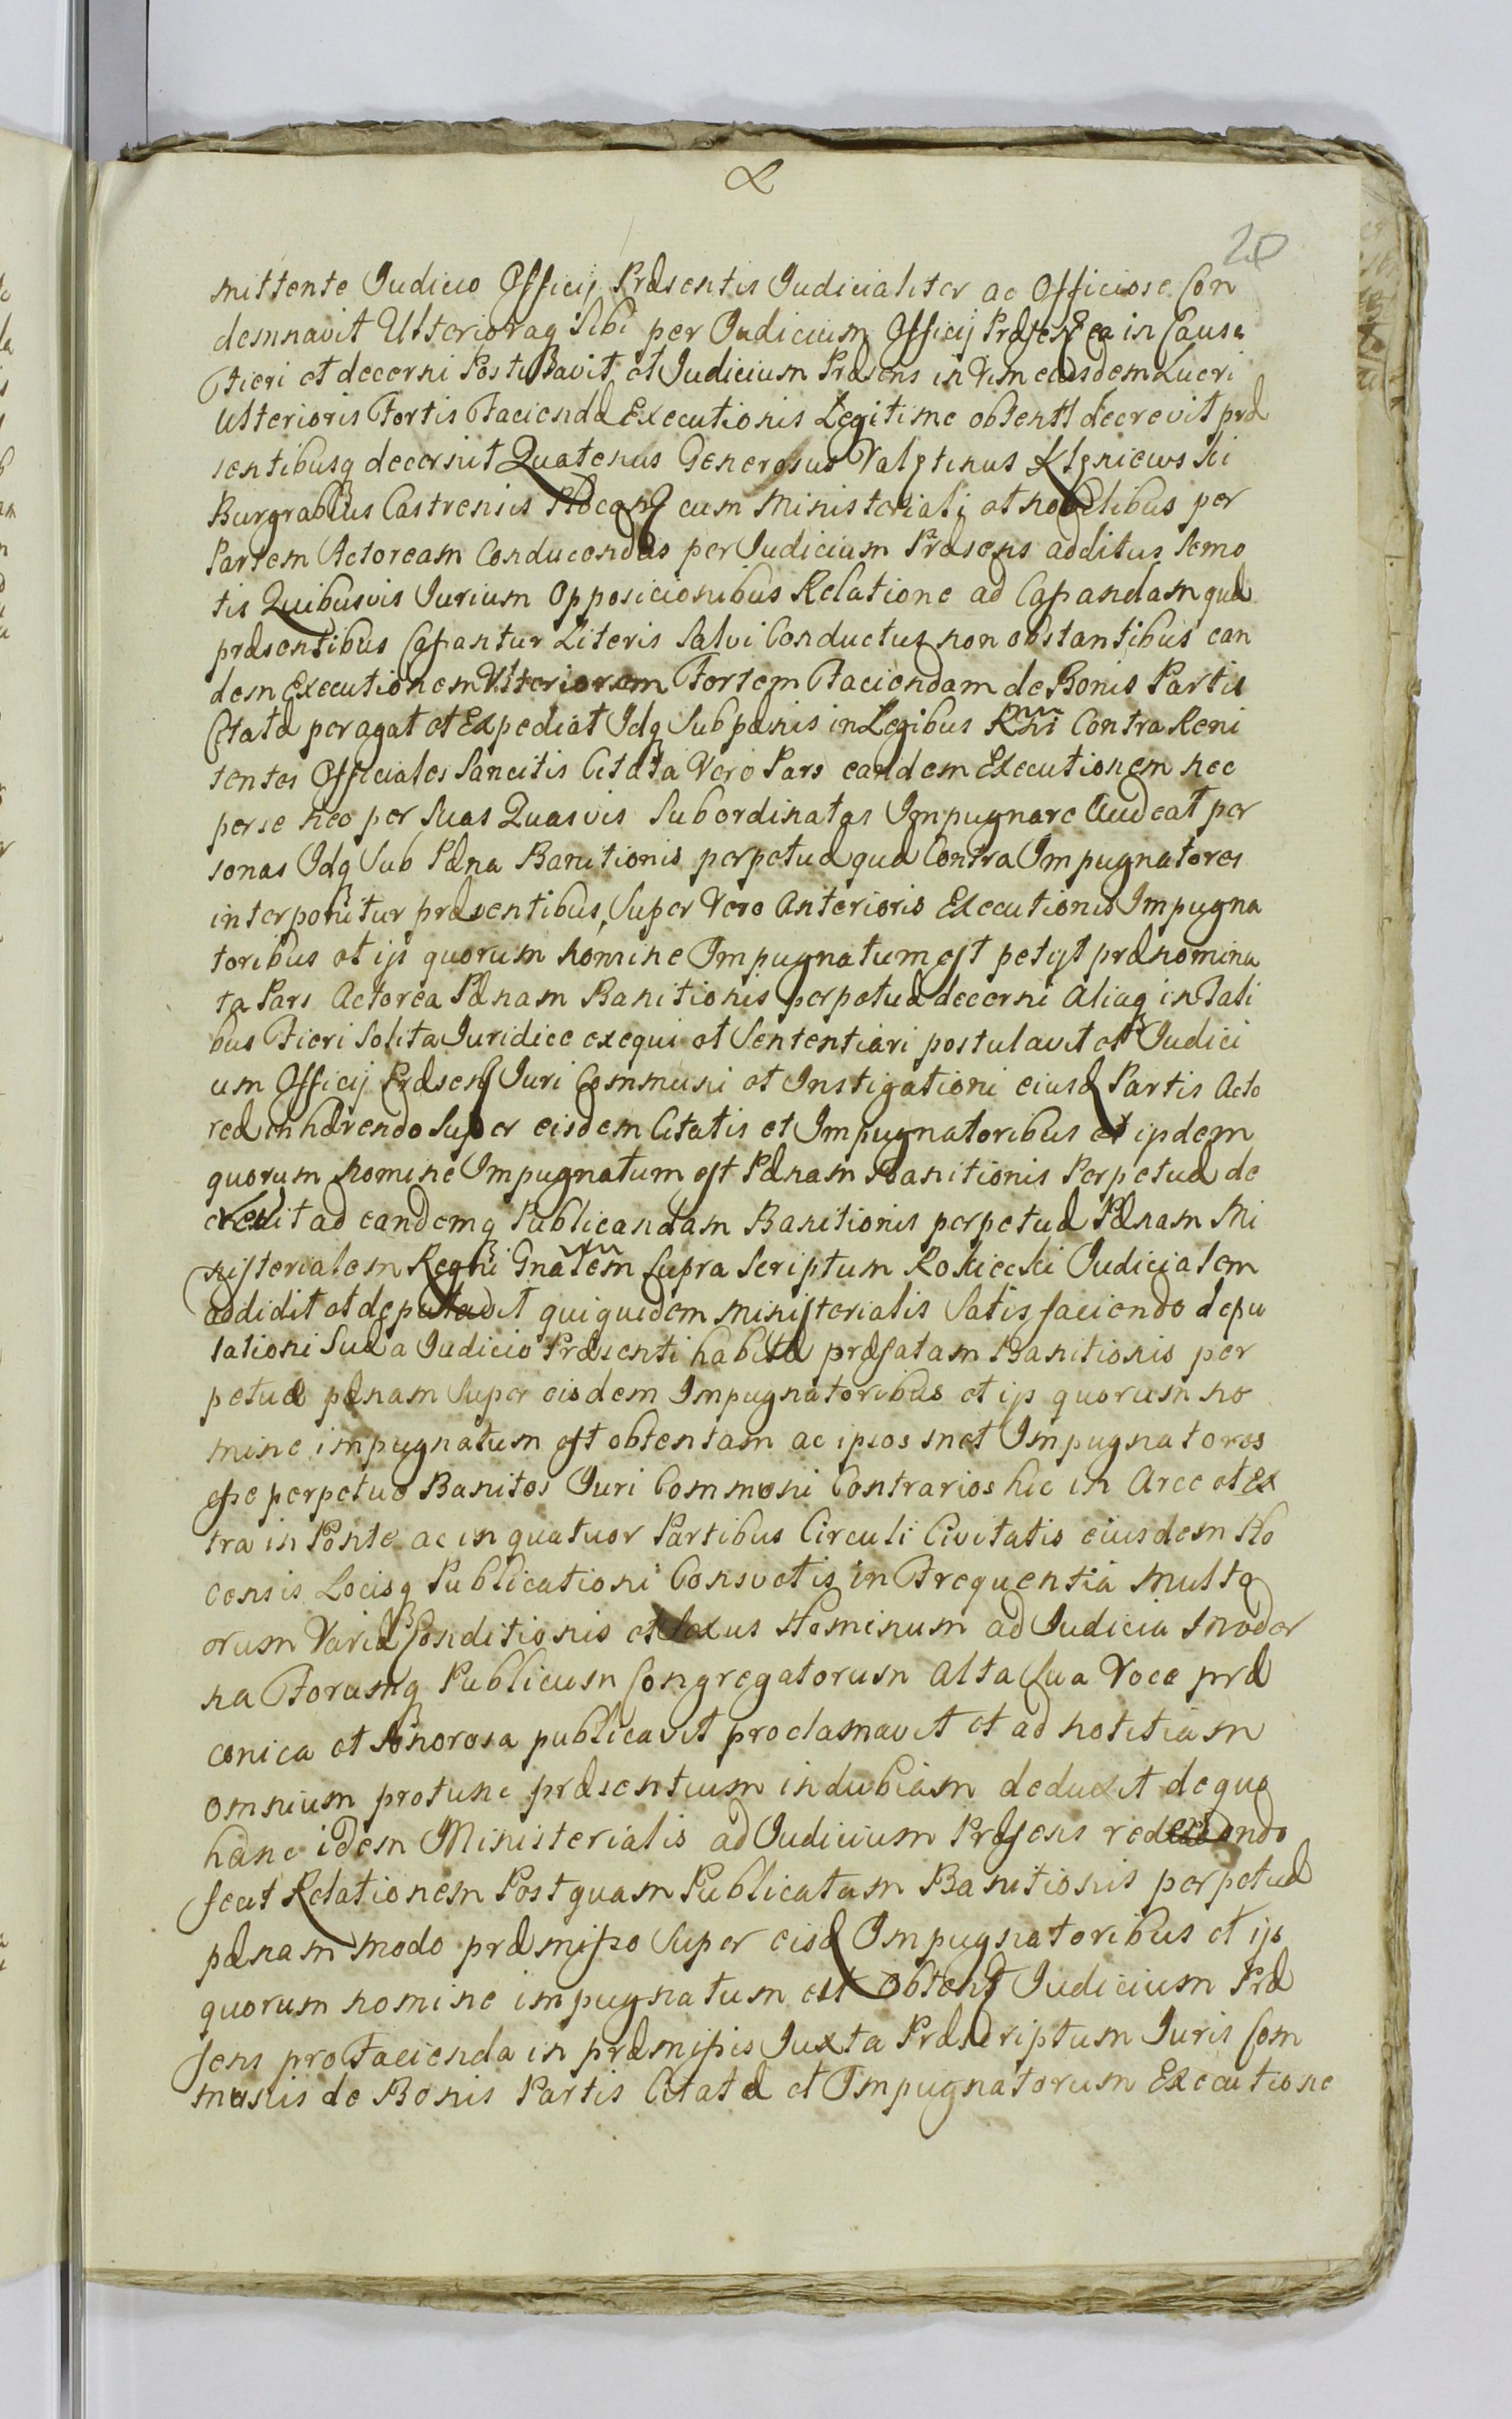 20
mittente Judicio Officij Præsentis Judicialiter ac Officiose Con
demnavit Ulterioraq sibi per Judicium Officij Præsens ea in Causa
Fieri et decerni Postulavit et Judicium Præsens in Vim eiusdem Lucri
Ulterioris Fortis Faciendæ Executionis Legitime obtenti decrevit præ
sentibusq decernit Quatenus Generosus Valentinus
Burgrabius Castrensis Plocens cum Ministeriali et nobilibus per
Partem Actoream Conducendus per Judicium Præsens additus Semo
tis Quibusvis Jurium Opposicionibus Relatione ad Cassandam quæ
præsentibus Cassantur Literis Salvi Conductus non obstantibus ean
dem Executionem Ulteriorem Fortem Faciendam de Bonis Partis
Citatæ peragat et Expediat Idq Sub pænis in Legibus Rni Contra Reni
tentes Officiales Sancitis Citata Vero Pars eandem Executionem nec
per se nec per Suas Quasvis Subordinatas Impugnare Audeat per
sonas Idq Sub Pæna Banitionis perpetuæ quæ Contra Impugnatores
interponitur præsentibus, Super Vero Anterioris Executionis Impugna
toribus et ijs quorum nomine Impugnatum est petijt prænomina
ta Pars Actorea Pænam Banitionis perpetuæ decerni Aliaq in Tali
bus Fieri Solita Juridice exequi et Sententiari postulavit et Judici
um Officij Præsens Juri Communi et Instigationi eiusd Partis Acto
reæ inhærendo Super eisdem Citatis et Impugnatoribus et ijsdem
quorum nomine Impugnatum est Pænam Banitionis Perpetuæ de
crevit ad eandemq Publicandam Banitionis perpetuæ Pænam Mi
nisterialem Regni Gnãlem Supra Scriptum Rokicski Judicialem
addidit et deputavit qui quidem Ministerialis Satis faciendo depu
tationi Suæ a Judicio Præsenti habitæ præfatam Banitionis per
petuæ pænam Super eisdem Impugnatoribus et ijs quorum no
mine impugnatum est obtentam ac ipsos met Impugnatores
esse perpetuo Banitos Juri Communi Contrarios hic in Arce et Ex
tra in Ponte ac in quatuor Partibus Circuli Civitatis eiusdem Plo
censis Locisq Publicationi Consvetis in Frequentia Multo
orum Variæ Conditionis et Sexus Hominum ad Judicia Moder
na Forumq Publicum Congregatorum Alta Sua Voce præ
conica et Sonorosa publicavit proclamavit et ad notitiam
omnium protunc præsentium indubiam deduxit de quo
hanc idem Ministerialis ad Judicium Præsens
fecit Relationem Post quam Publicatam Banitionis perpetuæ
pænam modo præmisso Super eisd Impugnatoribus et ijs
quorum nomine impugnatum est obtent Judicium Præ
sens pro Facienda in præmissis Juxta Præscriptum Juris Com
munis de Bonis Partis Citatæ et Impugnatorum Executione